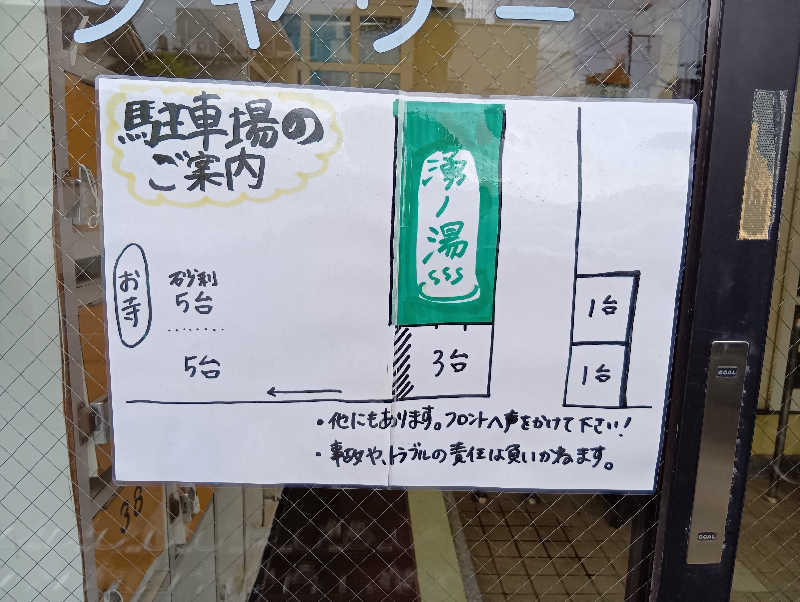 駐車場の
ご案内
湧ノ湯
お寺
砂利
5台
5台
3台
1台
1台
・他にもあります。フロントへ声をかけて下さい!
・事故や、トラブルの責任は負いかねます。
38
GOAL
GOAL